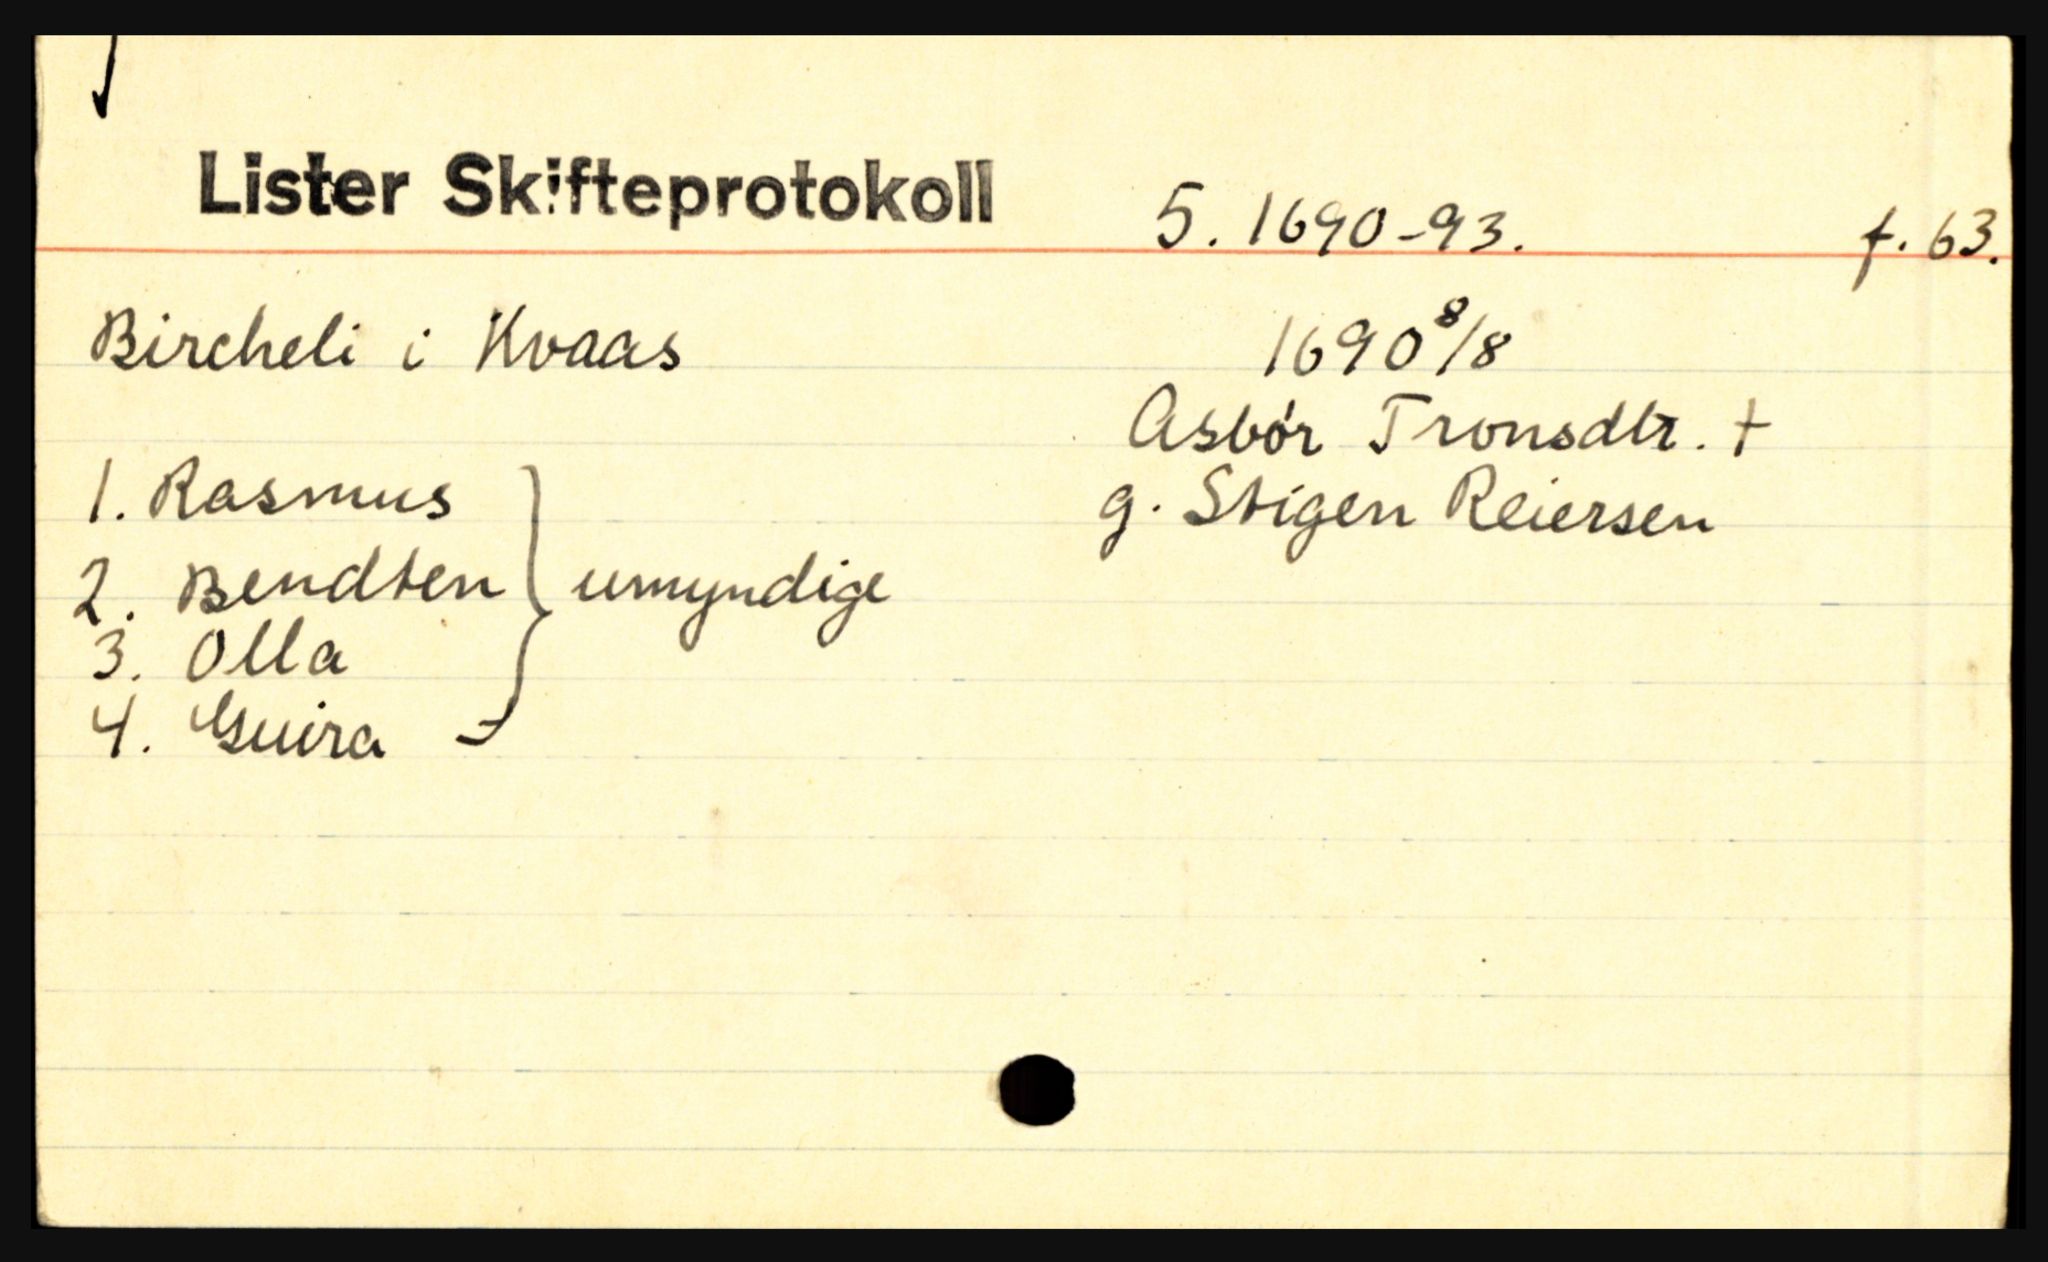 Lister Skifteprotokoll 5. 1690-93. f. 63.
Bircheli i Kvaas 1690 8/8
Asbór Tronsdtr. †
g. Stigen Reiersen
1. Rasmus
2. Bendten } umyndige
3. Olla
4. Guira